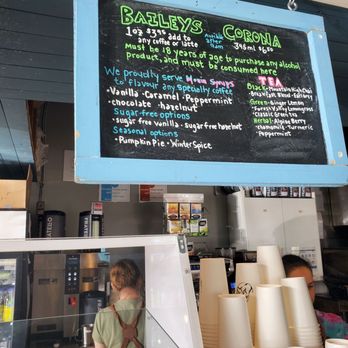 BAILEYS
1oz $3.95 add to
any coffee or latte
CORONA
Available
after
11am
341ml $6.50
Must be 18 years of age to purchase any alcohol
product, and must be consumed here
We proudly serve Monin Syrups
to flavour any specialty coffee
-Vanilla -Caramel -Peppermint
-chocolate -hazelnut
Sugar-free options
-sugar free vanilla -sugar free hazelnut
Seasonal options
-Pumpkin Pie -Winter Spice
TEA
Black-Mountain High Chai
-Breakfast Blend -Earl Grey
Green-Ginger Lemon
-Forest Valley Lemongrass
-Classic Green tea
Herbal-Alpine Berry
-chamomile -Turmeric
Peppermint